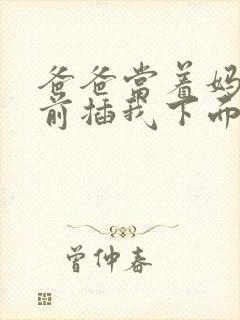 爸爸当着妈
前插我下
曾仲春